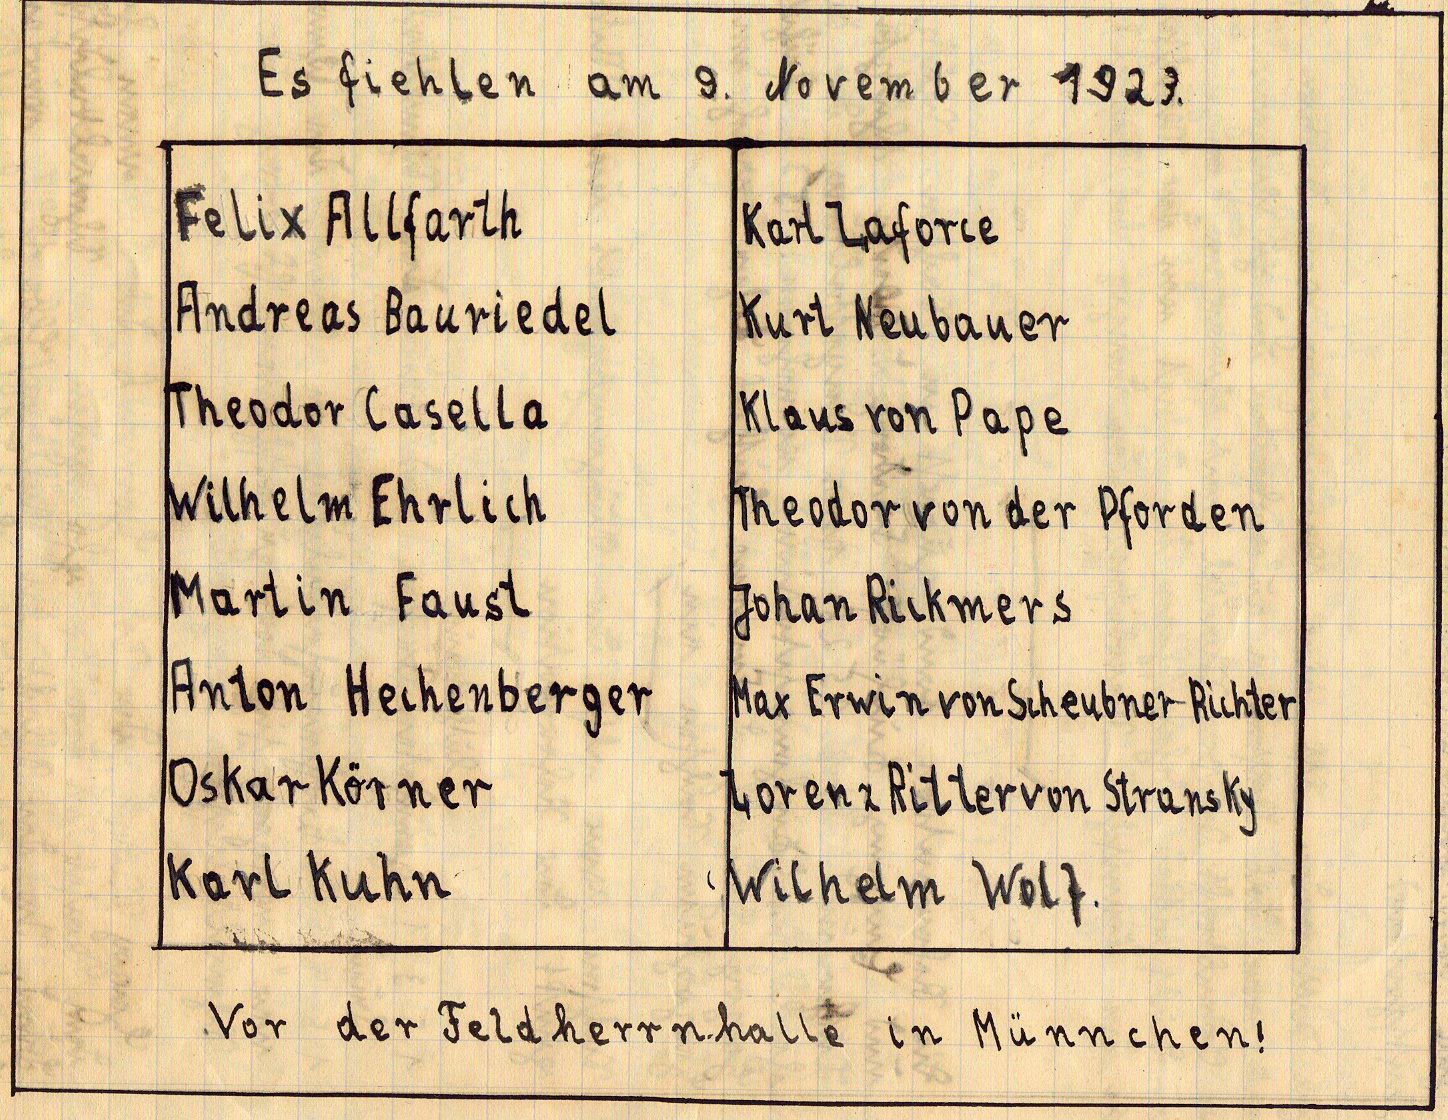 Es fiehlen am 9. November 1923.
Felix Allfarth
Andreas Bauriedel
Theodor Casella
Wilhelm Ehrlich
Martin Faust
Anton Hechenberger
Oskar Körner
Karl Kuhn
Karl Laforce
Kurt Neubauer
Klaus von Pape
Theodor von der Pforden
Johan Rickmers
Max Erwin von Scheubner-Richter
Lorenz Ritter von Stransky
Wilhelm Wolf.
Vor der Feldherrnhalle in Münnchen!